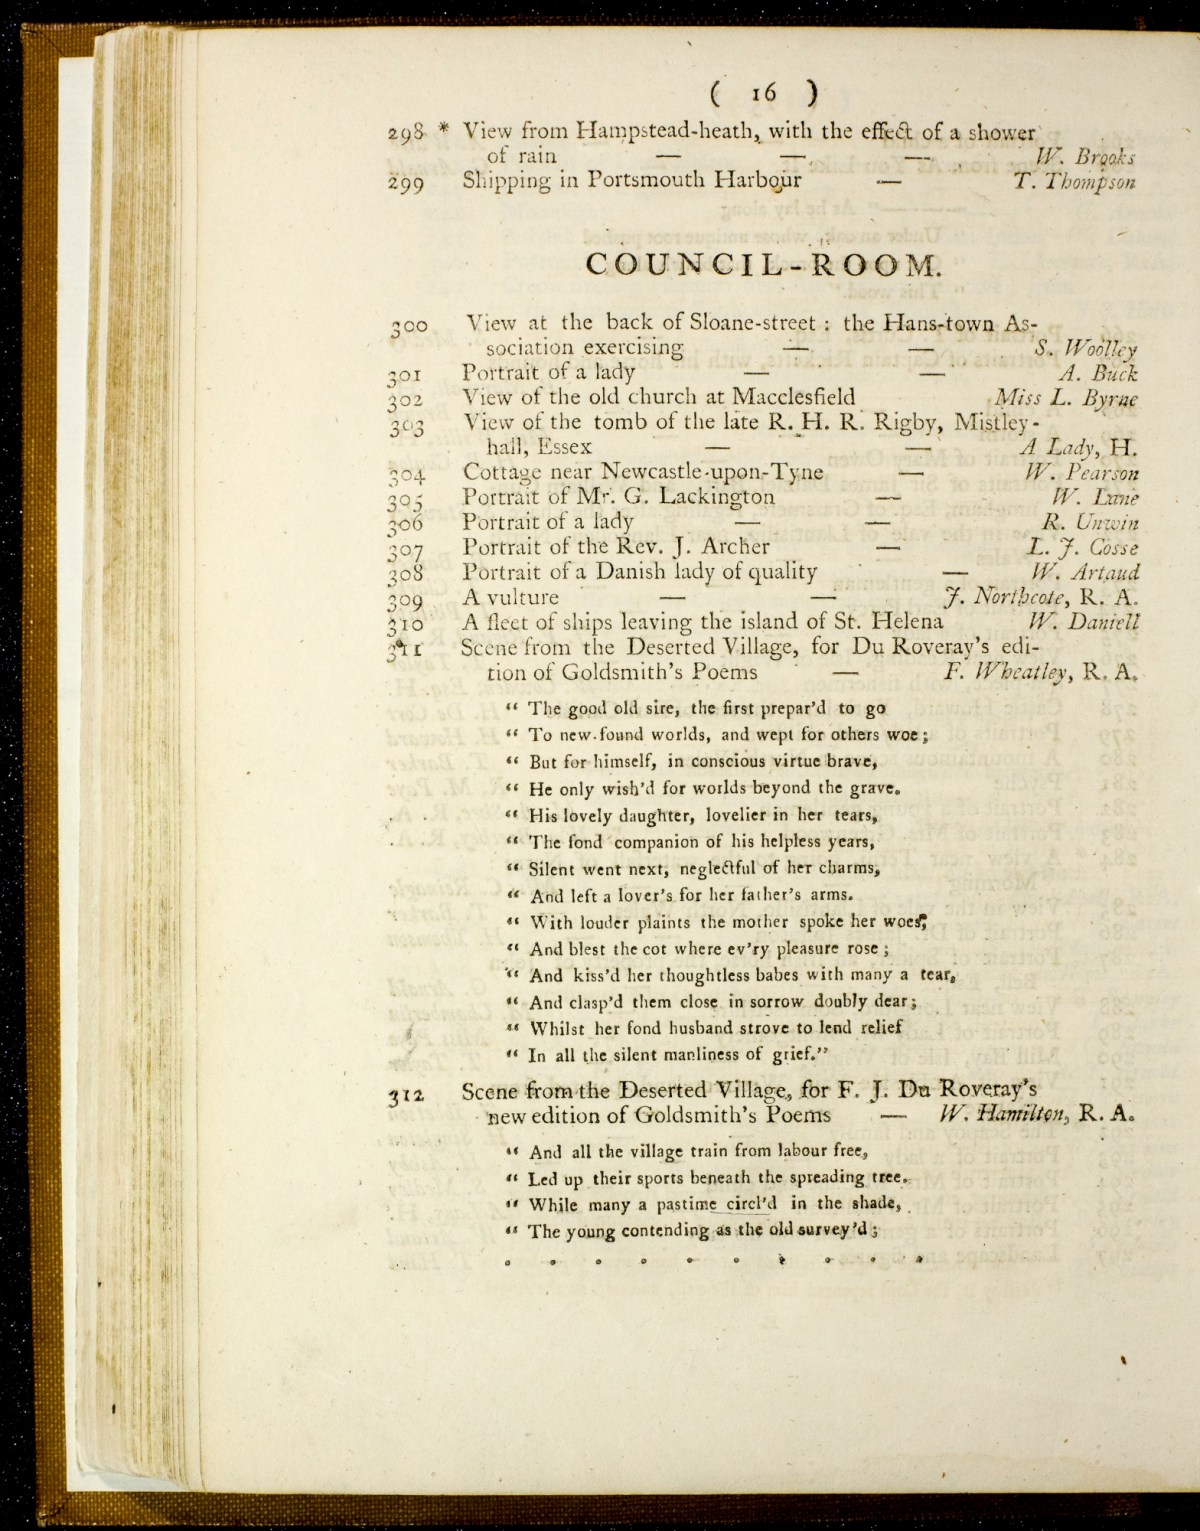 ( 16 )
298 * View from Hampstead-heath, with the effect of a shower
of rain — — — W. Brooks
299 Shipping in Portsmouth Harbour — T. Thompson
COUNCIL-ROOM.
300 View at the back of Sloane-street : the Hans-town As-
sociation exercising — — S. Woolley
301 Portrait of a lady — — A. Buck
302 View of the old church at Macclesfield Miss L. Byrne
303 View of the tomb of the late R. H. R. Rigby, Mistley-
hall, Essex — — A Lady, H.
304 Cottage near Newcastle-upon-Tyne — W. Pearson
305 Portrait of Mr. G. Lackington — W. Lane
306 Portrait of a lady — — R. Unwin
307 Portrait of the Rev. J. Archer — L. J. Cosse
308 Portrait of a Danish lady of quality — W. Artaud
309 A vulture — — J. Northcote, R. A.
310 A fleet of ships leaving the island of St. Helena W. Daniell
311 Scene from the Deserted Village, for Du Roveray's edi-
tion of Goldsmith's Poems — F. Wheatley, R. A.
“ The good old sire, the first prepar'd to go
“ To new-found worlds, and wept for others woe ;
“ But for himself, in conscious virtue brave,
“ He only wish'd for worlds beyond the grave.
“ His lovely daughter, lovelier in her tears,
“ The fond companion of his helpless years,
“ Silent went next, neglectful of her charms,
“ And left a lover's for her father's arms.
“ With louder plaints the mother spoke her woes,
“ And blest the cot where ev'ry pleasure rose ;
“ And kiss'd her thoughtless babes with many a tear,
“ And clasp'd them close in sorrow doubly dear ;
“ Whilst her fond husband strove to lend relief
“ In all the silent manliness of grief.”
312 Scene from the Deserted Village, for F. J. Du Roveray's
new edition of Goldsmith's Poems — W. Hamilton, R. A.
“ And all the village train from labour free,
“ Led up their sports beneath the spreading tree.
“ While many a pastime circl'd in the shade,
“ The young contending as the old survey'd ;
* * * * * * * * * *